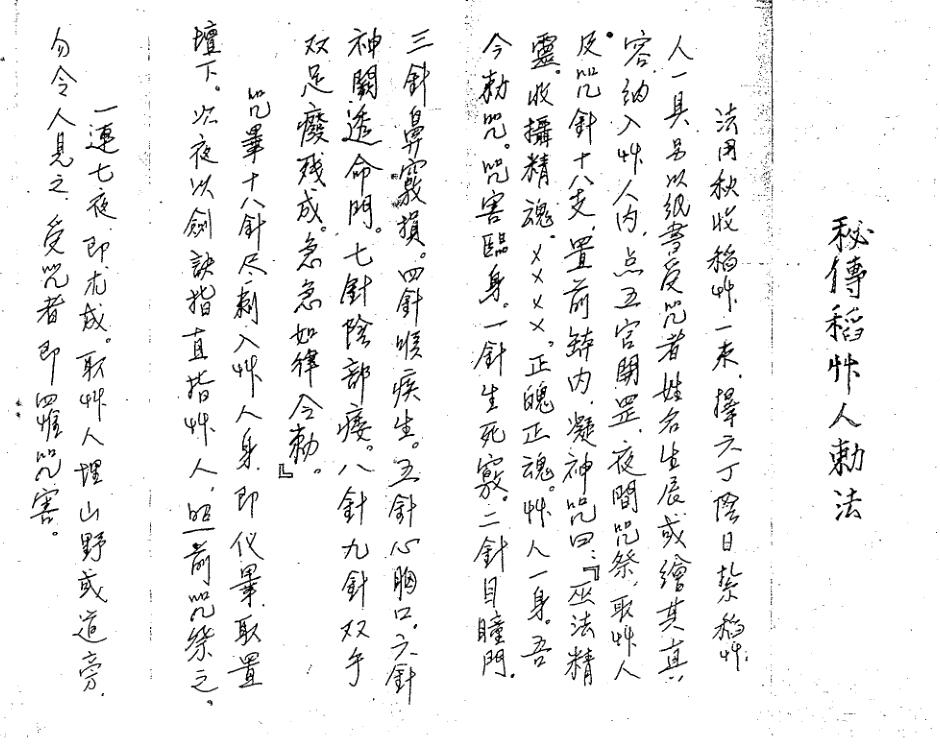 秘傳稻艸人勅法
法用秋收稻艸一束．擇六丁陰日紮稻艸
人一具另以紙書受咒者姓名生辰或繪其真
容．納入艸人內．点五官開罡．夜間咒祭．取艸人
及咒針十八支．置前缽內．凝神咒曰：『巫法精
靈．收攝精魂．××××．正魄正魂。艸人一身。吾
今勅咒。咒害臨身。一針生死竅。二針目瞳門．
三針鼻竅損。四針喉疾生。五針心胸口．六針
神闕透命門。七針陰部痿。八針九針双手
双足癈残成。急急如律令勅。』
咒畢十八針尽刺入艸人身．即仪畢．取置
壇下。次夜以劍訣指直指艸人．照前咒祭之。
一連七夜．即尤成。取艸人埋山野或道旁．
勿令人見之．受咒者即罹咒害。